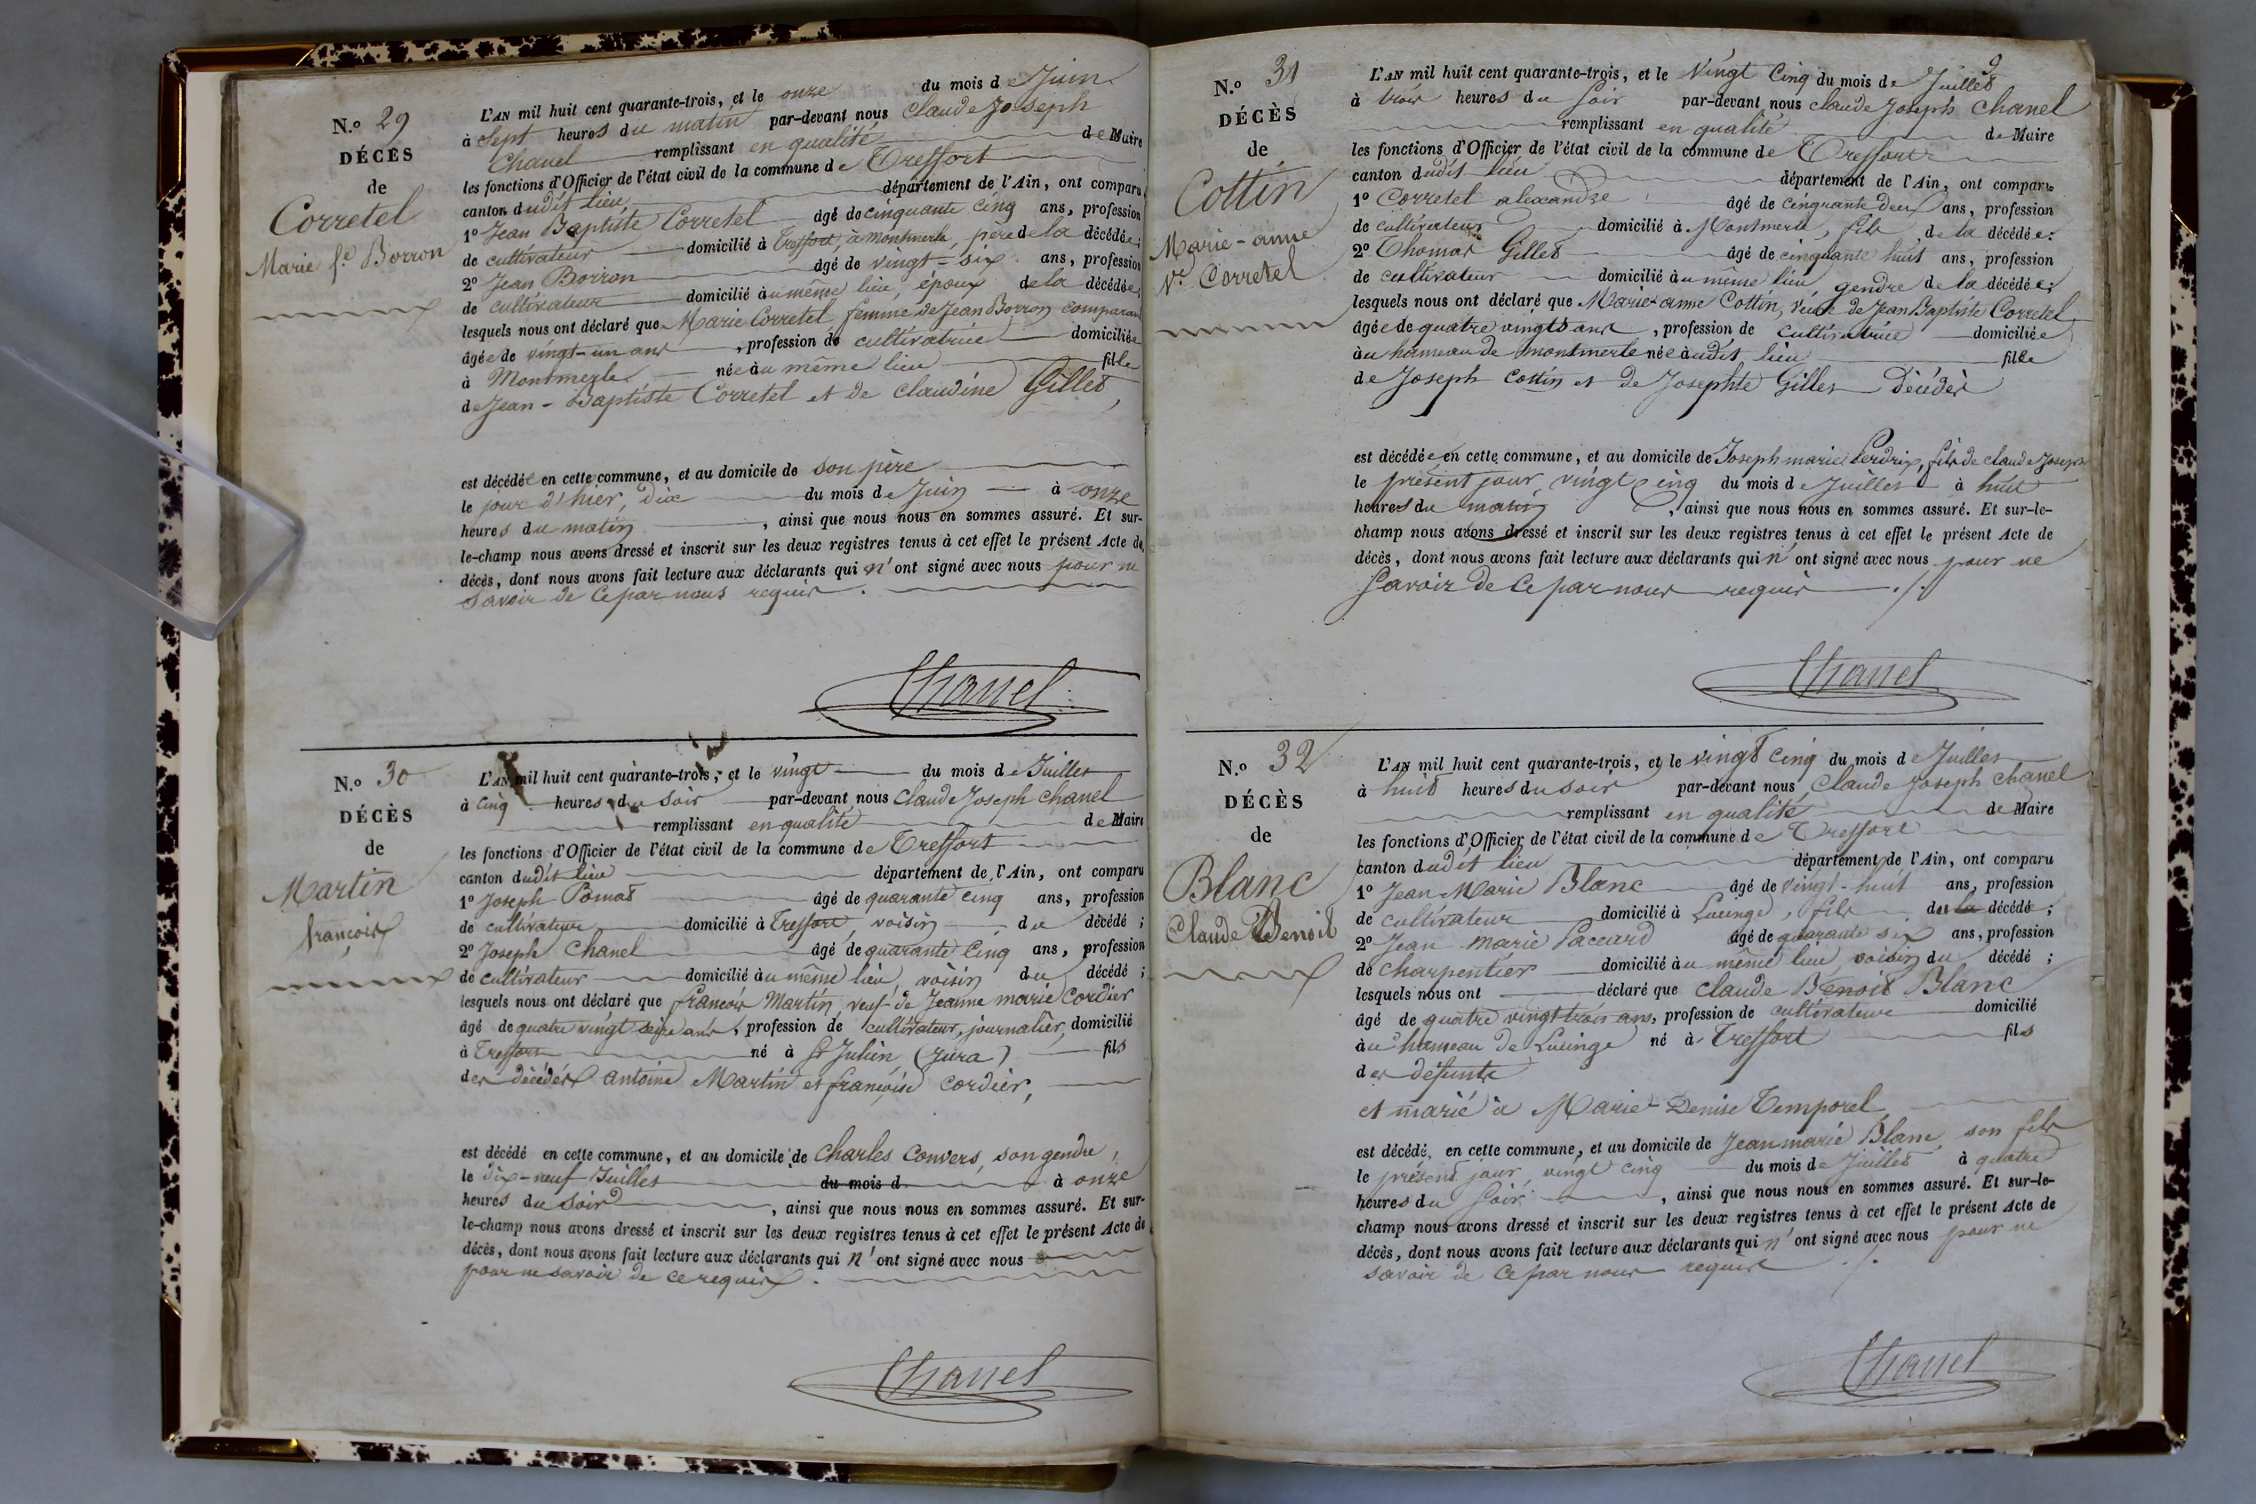 N.º 29
DÉCÈS
de
Corretel
Marie f.e Borron
L'AN mil huit cent quarante-trois, et le onze du mois de Juin
à Sept heures du matin par-devant nous Claude Joseph
Chanel remplissant en qualité de Maire
les fonctions d'Officier de l'état civil de la commune de Treffort
canton dudit lieu département de l'Ain, ont comparu
1º Jean Baptiste Corretel âgé de cinquante cinq ans, profession
de cultivateur domicilié à Treffort, à Montmerle, père de la décédée;
2º Jean Borron âgé de vingt-six ans, profession
de cultivateur domicilié au même lieu, époux de la décédée;
lesquels nous ont déclaré que Marie Corretel femme de Jean Borron comparant
âgée de vingt-un ans, profession de cultivatrice domiciliée
à Montmerle née au même lieu fille
de Jean-Baptiste Corretel et de Claudine Gillet,
est décédée en cette commune, et au domicile de son père
le jour d'hier, dix du mois de Juin à onze
heures du matin, ainsi que nous nous en sommes assuré. Et sur-
le-champ nous avons dressé et inscrit sur les deux registres tenus à cet effet le présent Acte de
décès, dont nous avons fait lecture aux déclarants qui n'ont signé avec nous pour ne
savoir de ce par nous requis.
Chanel
N.º 30
DÉCÈS
de
Martin
françois
L'AN mil huit cent quarante-trois, et le vingt du mois de Juillet
à cinq heures du soir par-devant nous Claude Joseph Chanel
remplissant en qualité de Maire
les fonctions d'Officier de l'état civil de la commune de Treffort
canton dudit lieu département de l'Ain, ont comparu
1º Joseph Pomat âgé de quarante cinq ans, profession
de cultivateur domicilié à Treffort, voisin du décédé;
2º Joseph Chanel âgé de quarante cinq ans, profession
de cultivateur domicilié au même lieu, voisin du décédé;
lesquels nous ont déclaré que françois Martin, veuf de Jeanne marie Cordier
âgé de quatre vingt seize ans, profession de cultivateur, journalier, domicilié
à Treffort né à St Julien (Jura) fils
des décédés antoine Martin et françoise cordier,
est décédé en cette commune, et au domicile de Charles Convers, son gendre,
le dix-neuf Juillet du mois d à onze
heures du soir, ainsi que nous nous en sommes assuré. Et sur-
le-champ nous avons dressé et inscrit sur les deux registres tenus à cet effet le présent Acte de
décès, dont nous avons fait lecture aux déclarants qui n'ont signé avec nous
pour ne savoir de ce requis.
Chanel
9
N.º 31
DÉCÈS
de
Cottin
Marie-anne
Ve Corretel
L'AN mil huit cent quarante-trois, et le Vingt Cinq du mois de Juillet
à trois heures du soir par-devant nous Claude Joseph Chanel
remplissant en qualité de Maire
les fonctions d'Officier de l'état civil de la commune de Treffort
canton dudit lieu département de l'Ain, ont comparu
1º Corretel alexandre âgé de cinquante deux ans, profession
de cultivateur domicilié à Montmerle, fils de la décédée;
2º Thomas Gillet âgé de cinquante huit ans, profession
de cultivateur domicilié au même lieu, gendre de la décédée;
lesquels nous ont déclaré que Marie-anne Cottin, veuve de Jean Baptiste Corretel
âgée de quatre vingts ans, profession de cultivatrice domiciliée
au hameau de Montmerle née audit lieu fille
de Joseph Cottin et de Josephte Gillet décédés
est décédée en cette commune, et au domicile de Joseph marie Perdrix, fils de Claude Joseph
le présent jour, vingt cinq du mois de Juillet à huit
heures du matin, ainsi que nous nous en sommes assuré. Et sur-le-
champ nous avons dressé et inscrit sur les deux registres tenus à cet effet le présent Acte de
décès, dont nous avons fait lecture aux déclarants qui n'ont signé avec nous pour ne
savoir de ce par nous requis ./.
Chanel
N.º 32
DÉCÈS
de
Blanc
Claude Benoit
L'AN mil huit cent quarante-trois, et le vingt cinq du mois de Juillet
à huit heures du soir par-devant nous Claude Joseph Chanel
remplissant en qualité de Maire
les fonctions d'Officier de l'état civil de la commune de Treffort
canton dudit lieu département de l'Ain, ont comparu
1º Jean Marie Blanc âgé de vingt-huit ans, profession
de cultivateur domicilié à Lucinge, fils du la décédé;
2º Jean-Marie Paccard âgé de quarante six ans, profession
de charpentier domicilié au même lieu, voisin du décédé;
lesquels nous ont déclaré que Claude Benoit Blanc
âgé de quatre vingt trois ans, profession de cultivateur domicilié
au hameau de Lucinge né à Treffort fils
des défunts
et marié à Marie-Denise Temporel
est décédé, en cette commune, et au domicile de Jean marie Blanc, son fils
le présent jour, vingt cinq du mois de Juillet à quatre
heures du soir, ainsi que nous nous en sommes assuré. Et sur-le-
champ nous avons dressé et inscrit sur les deux registres tenus à cet effet le présent Acte de
décès, dont nous avons fait lecture aux déclarants qui n'ont signé avec nous pour ne
savoir de ce par nous requis ./.
Chanel